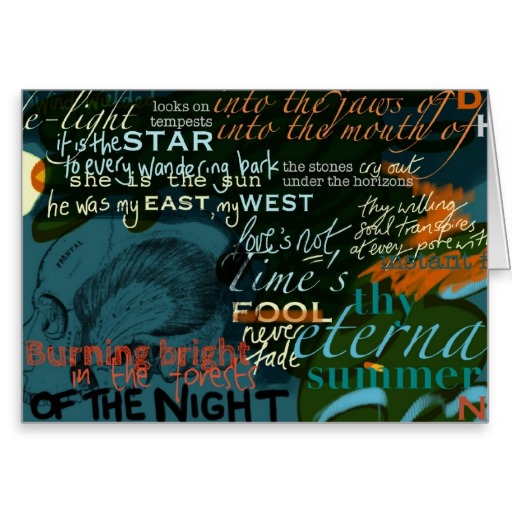 e-light
looks on
tempests
into the jaws of D
into the mouth of H
it is the STAR
to every wandering bark
the stones cry out
she is the sun
under the horizons
he was my EAST, my WEST
thy willing
soul transpires
at every pore with
instant f
love's not
Time's
FOOL
thy
never
fade
eterna
summer
Burning bright
in the forests
OF THE NIGHT
N